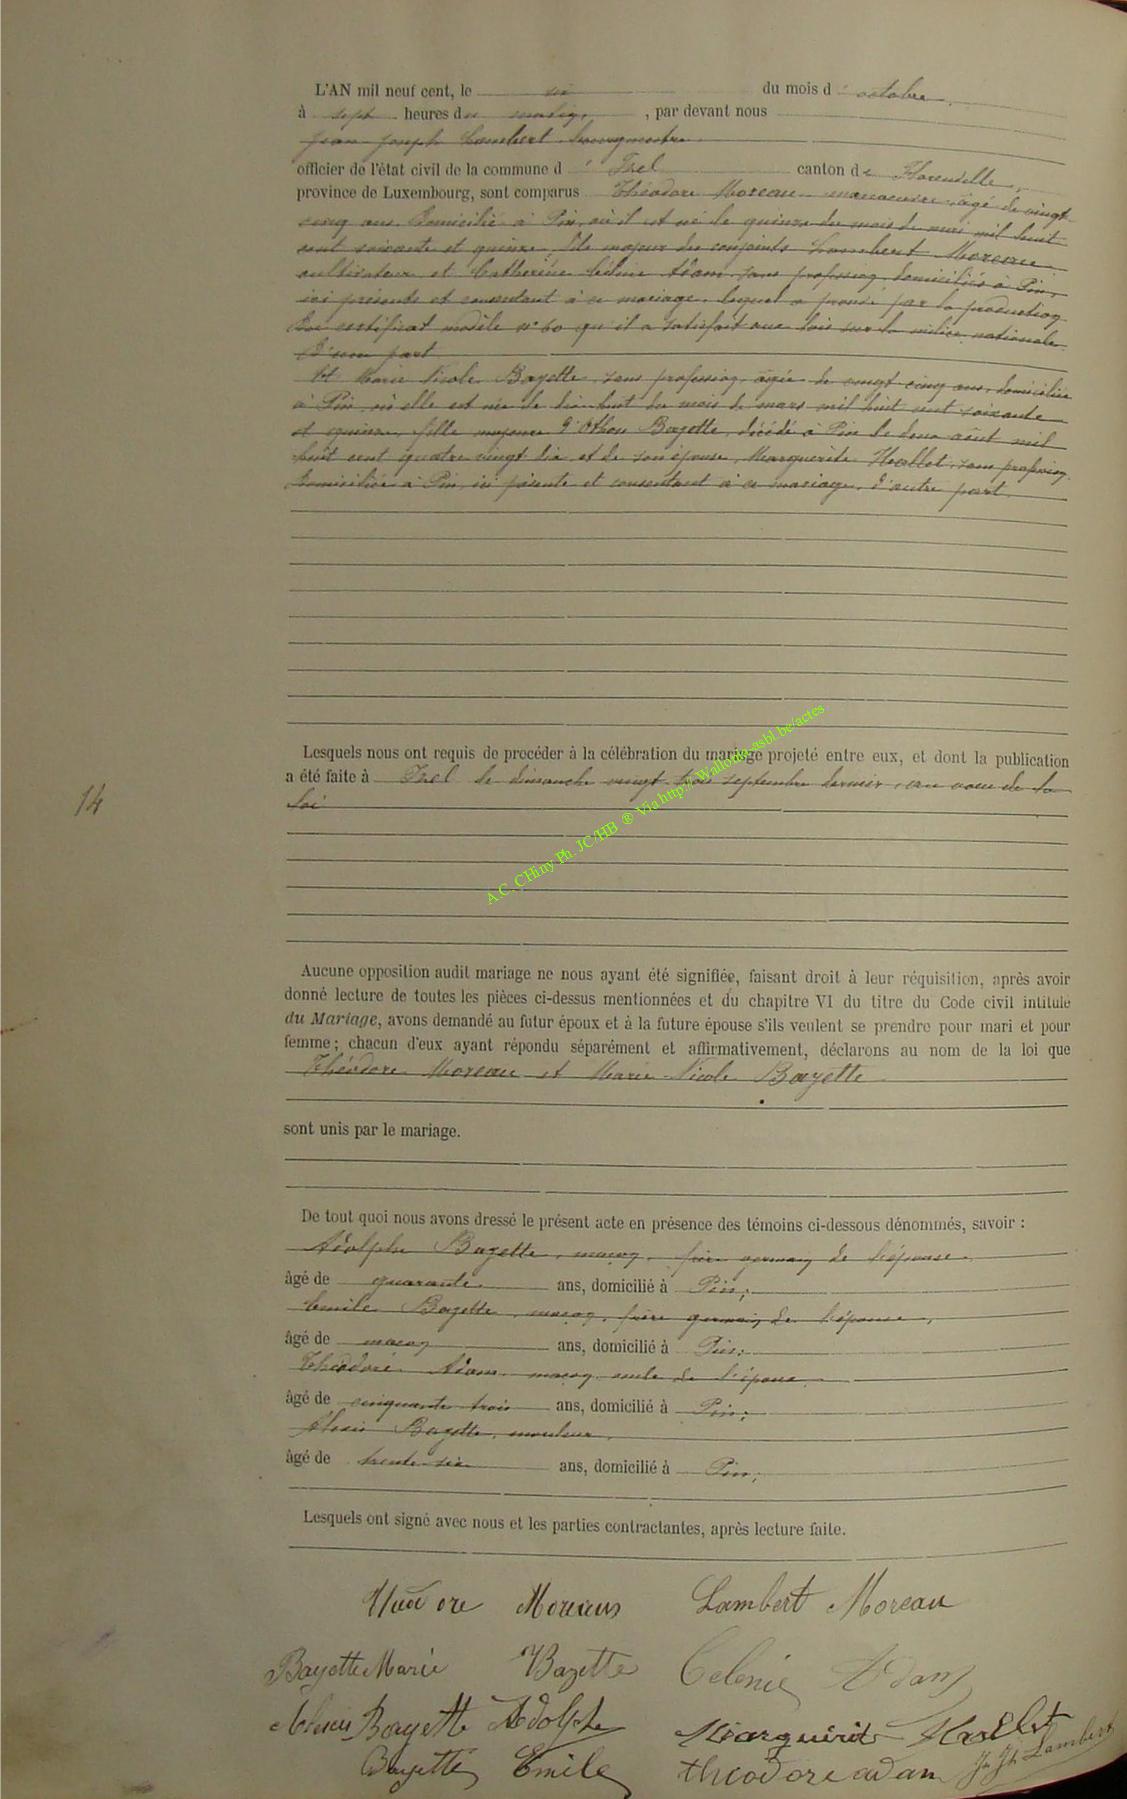 L'AN mil neuf cent, le six du mois d'octobre
à sept heures du matin, par devant nous
Jean Joseph Lambert bourgmestre
officier de l'état civil de la commune d'Izel canton de Florenville,
province de Luxembourg, sont comparus Théodore Moreau manoeuvre, âgé de vingt
cinq ans domicilié à Pin, où il est né le quinze du mois de mai mil huit
cent soixante et quinze, fils majeur des conjoints Lambert Moreau
cultivateur et Catherine Adam sans profession, domiciliés à Pin,
ici présents et consentant à ce mariage, lequel a prouvé par la production
certificat modèle n° 60 qu'il a satisfait aux lois sur la milice nationale
d'une part
Et Marie Nicole Bayette, sans profession, âgée de vingt cinq ans, domiciliée
à Pin où elle est née le dix huit du mois de mars mil huit cent soixante
et quinze, fille majeure d'Othon Bayette, décédé à Pin le deux août mil
huit cent quatre vingt dix et de son épouse, Marguerite Hallet, sans profession
domiciliée à Pin, ici présente et consentant à ce mariage, d'autre part
Lesquels nous ont requis de procéder à la célébration du mariage projeté entre eux, et dont la publication
a été faite à Izel le dimanche vingt trois septembre dernier, au voeu de la
loi
14
A.C. CHiny Ph. JC/HB ® Via http://Wallonia-asbl.be/actes
Aucune opposition audit mariage ne nous ayant été signifiée, faisant droit à leur réquisition, après avoir
donné lecture de toutes les pièces ci-dessus mentionnées et du chapitre VI du titre du Code civil intitulé
du Mariage, avons demandé au futur époux et à la future épouse s'ils veulent se prendre pour mari et pour
femme; chacun d'eux ayant répondu séparément et affirmativement, déclarons au nom de la loi que
Théodore Moreau et Marie Nicole Bayette
sont unis par le mariage.
De tout quoi nous avons dressé le présent acte en présence des témoins ci-dessous dénommés, savoir :
Adolphe Bayette, maçon, frère germain de l'épouse
âgé de quarante ans, domicilié à Pin;
Emile Bayette, maçon, frère germain de l'épouse,
âgé de maçon ans, domicilié à Pin;
Théodore Adam maçon oncle de l'époux
âgé de cinquante trois ans, domicilié à Pin;
Alexis Bayette, mouleur
âgé de trente-six ans, domicilié à Pin;
Lesquels ont signé avec nous et les parties contractantes, après lecture faite.
Moreau Lambert Moreau
Bayette Marie Bayette Adam
Alexis Bayette Adolphe Marguerite Hallet
Bayette Emile theodore adam Jn Jh Lambert